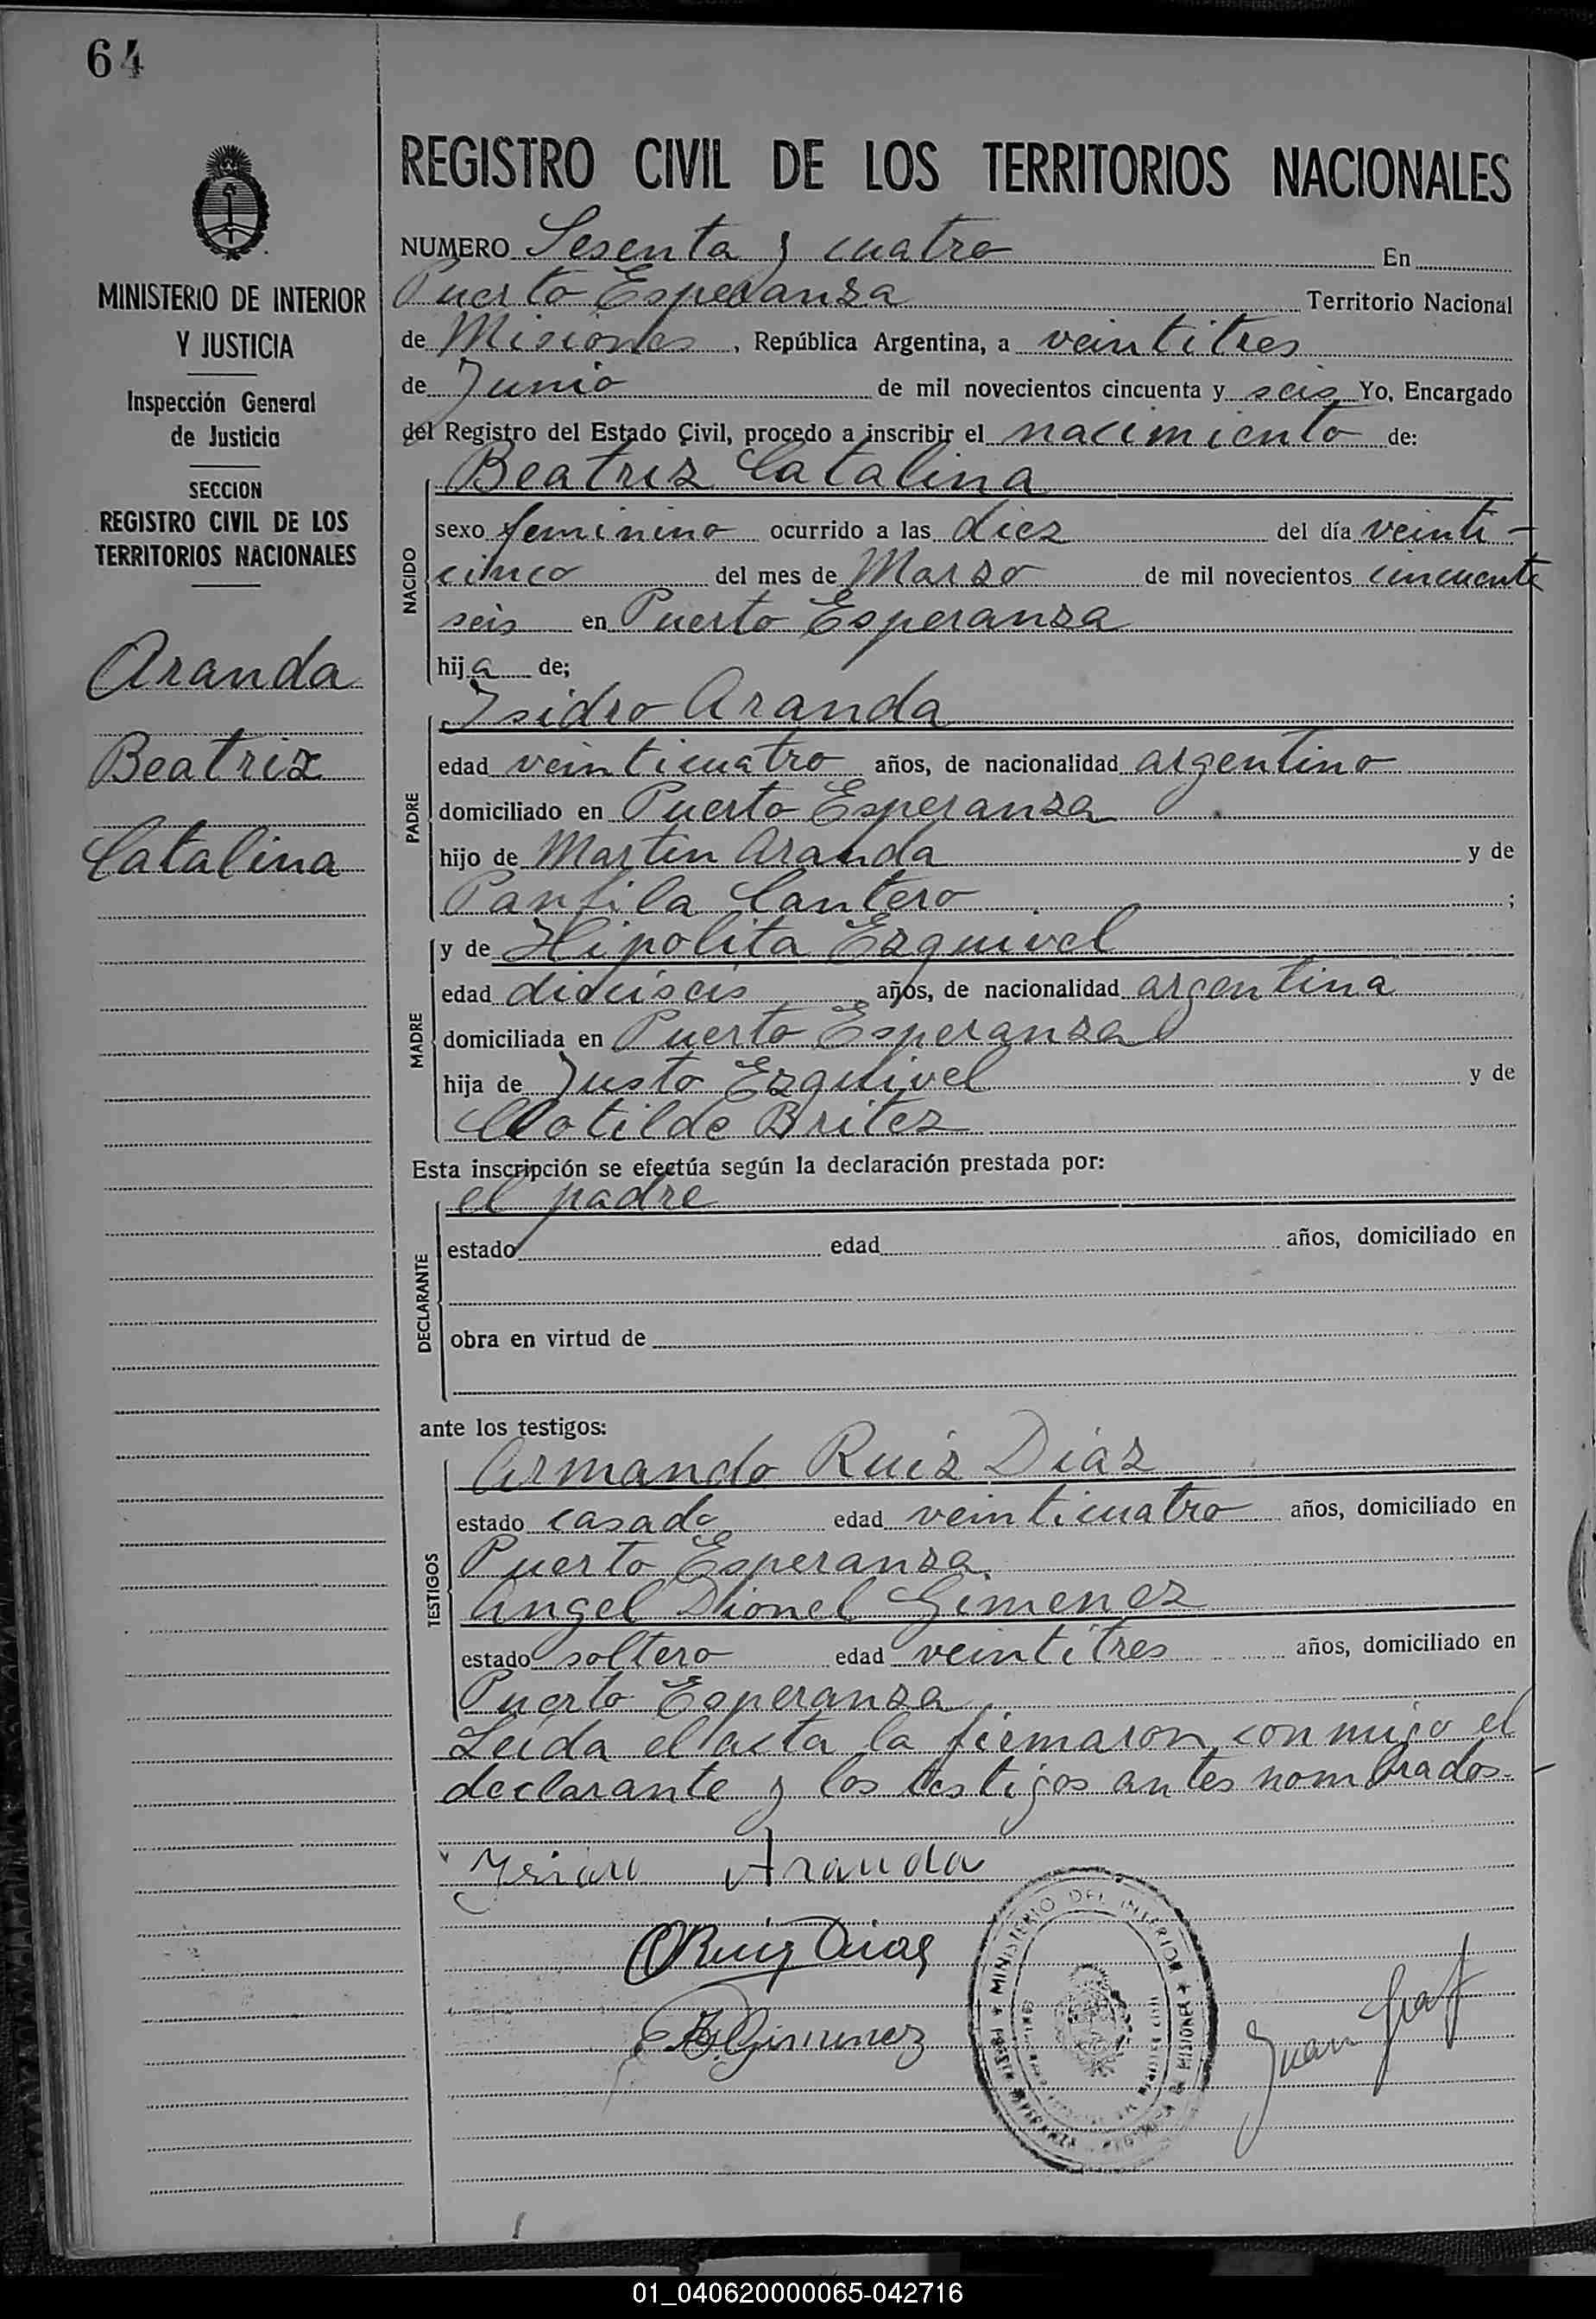 64
MINISTERIO DE INTERIOR
Y JUSTICIA
Inspección General
de Justicia
SECCION
REGISTRO CIVIL DE LOS
TERRITORIOS NACIONALES
Aranda
Beatriz
Catalina
REGISTRO CIVIL DE LOS TERRITORIOS NACIONALES
NUMERO Sesenta y cuatro En
Puerto Esperanza Territorio Nacional
de Misiones, República Argentina, a veintitres
de Junio de mil novecientos cincuenta y seis Yo, Encargado
del Registro del Estado Civil, procedo a inscribir el nacimiento de:
Beatriz Catalina
NACIDO
sexo feminino ocurrido a las diez del día veinti-
cinco del mes de Marzo de mil novecientos cincuenta
seis en Puerto Esperanza
hija de;
Isidro Aranda
PADRE
edad veinticuatro años, de nacionalidad argentino
domiciliado en Puerto Esperanza
hijo de Martin Aranda y de
Panfila Cantero ;
y de Hipolita Ezquivel
MADRE
edad dieciseis años, de nacionalidad argentina
domiciliada en Puerto Esperanza
hija de Justo Ezquivel y de
Clotilde Britez
Esta inscripción se efectúa según la declaración prestada por:
el padre
DECLARANTE
estado edad años, domiciliado en
obra en virtud de
ante los testigos:
Armando Ruiz Diaz
TESTIGOS
estado casado edad veinticuatro años, domiciliado en
Puerto Esperanza
Angel Dionel Gimenez
estado soltero edad veintitres años, domiciliado en
Puerto Esperanza
Leida el acta la firmaron conmigo el
declarante y los testigos antes nombrados.-
Aranda
Ruiz Diaz
Gimenez
MINISTERIO DEL INTERIOR
MISIONES
Juan Graf
01_040620000065-042716